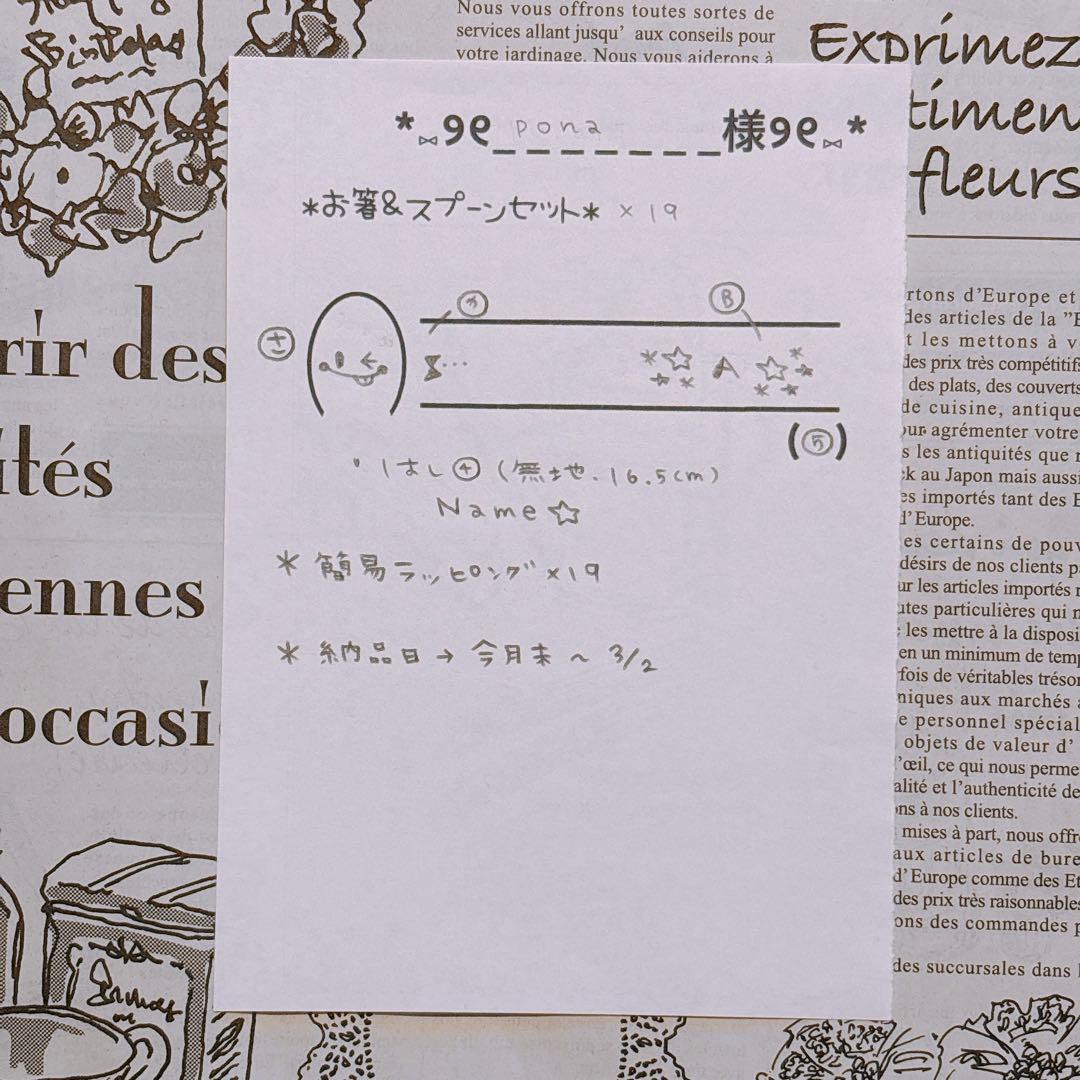 Nous vous offrons toutes sortes de
services allant jusqu' aux conseils pour
votre jardinage. Nous vous aiderons à
Exprimez
timen
fleurs
pona 様
*お箸&スプーンセット* ×19
B
A
(5)
・はし④(無地.16.5cm)
Name☆
* 簡易ラッピング×19
* 納品日→今月末~3/2
rir des
ités
ennes
occasi
rtons d'Europe et
des articles de la "
t les mettons à v
des prix très compétitifs
des plats, des couverts
de cuisine, antique
our agrémenter votre
s les antiquités que
ck au Japon mais aussi
es importés tant des
d'Europe.
es certains de pouv
désirs de nos clients p
ur les articles importés
utes particulières qui
les mettre à la disposi
en un minimum de temp
fois de véritables trésor
niques aux marchés
e personnel spécial
objets de valeur d'
'œil, ce qui nous perme
alité et l'authenticité de
ns à nos clients.
mises à part, nous offr
aux articles de bure
d'Europe comme des Et
des prix très raisonnables
ons des commandes p
des succursales dans